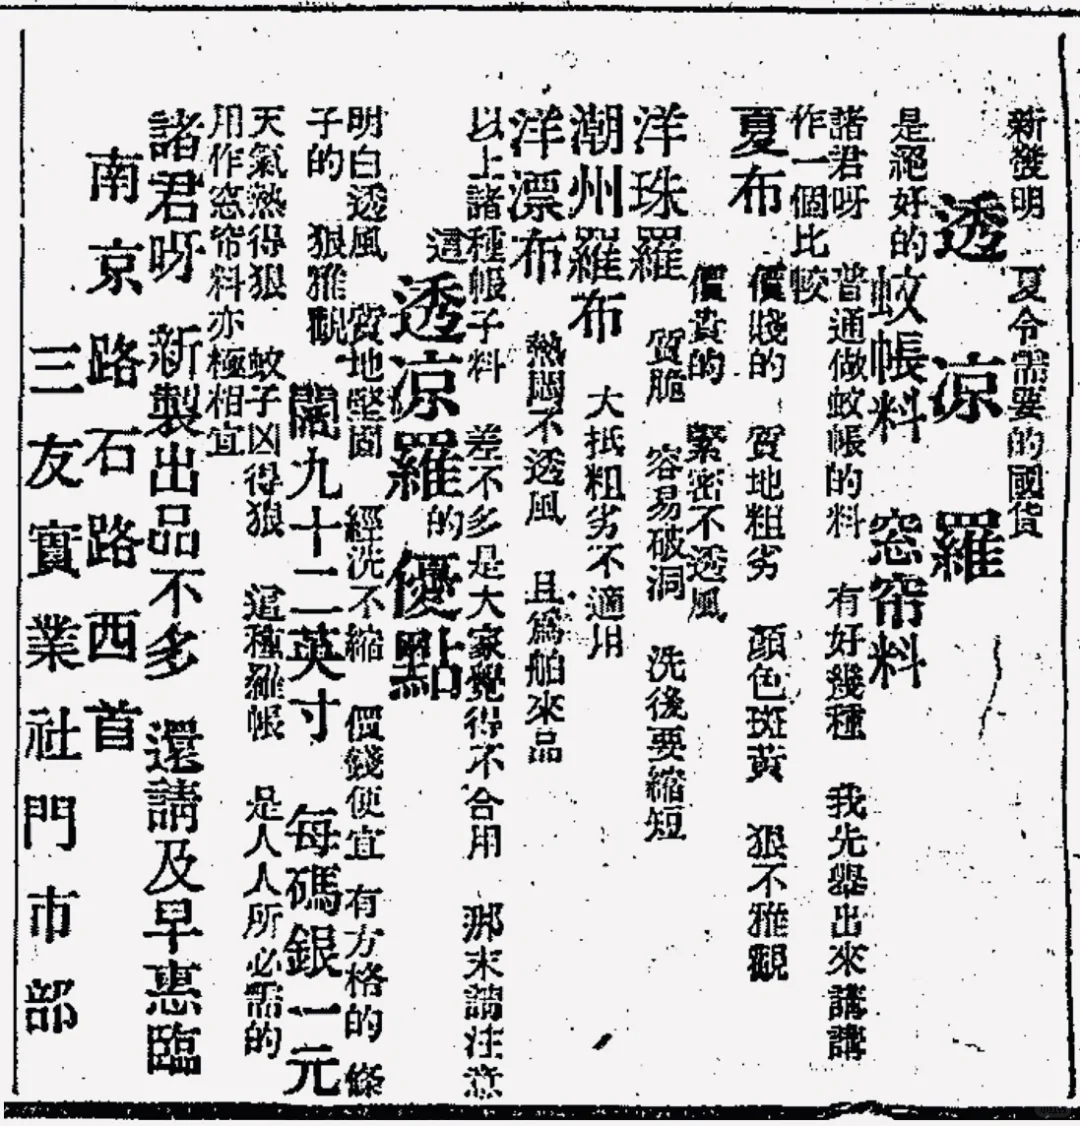 新發明　夏令需要的國貨
透涼羅
是絕好的蚊帳料　窓帘料
諸君呀　普通做蚊帳的料　有好幾種　我先舉出來講講
作一個比較
夏布　價賤的　質地粗劣　顏色斑黃　狠不雅觀
價貴的　緊密不透風
洋珠羅　質脆　容易破洞　洗後要縮短
潮州羅布　大抵粗劣不適用
洋漂布　熱悶不透風　且爲舶來品
以上諸種帳子料　差不多是大家覺得不合用　那末請注意
這透凉羅的優點
明白透風　質地堅固　經洗不縮　價錢便宜　有方格的　條
子的　狠雅觀　闊九十二英寸　每碼銀一元
天氣熱得狠　蚊子凶得狼　這種羅帳　是人人所必需的
用作窓帘料亦極相宜
諸君呀　新製出品不多　還請及早惠臨
南京路石路西首
三友實業社門市部